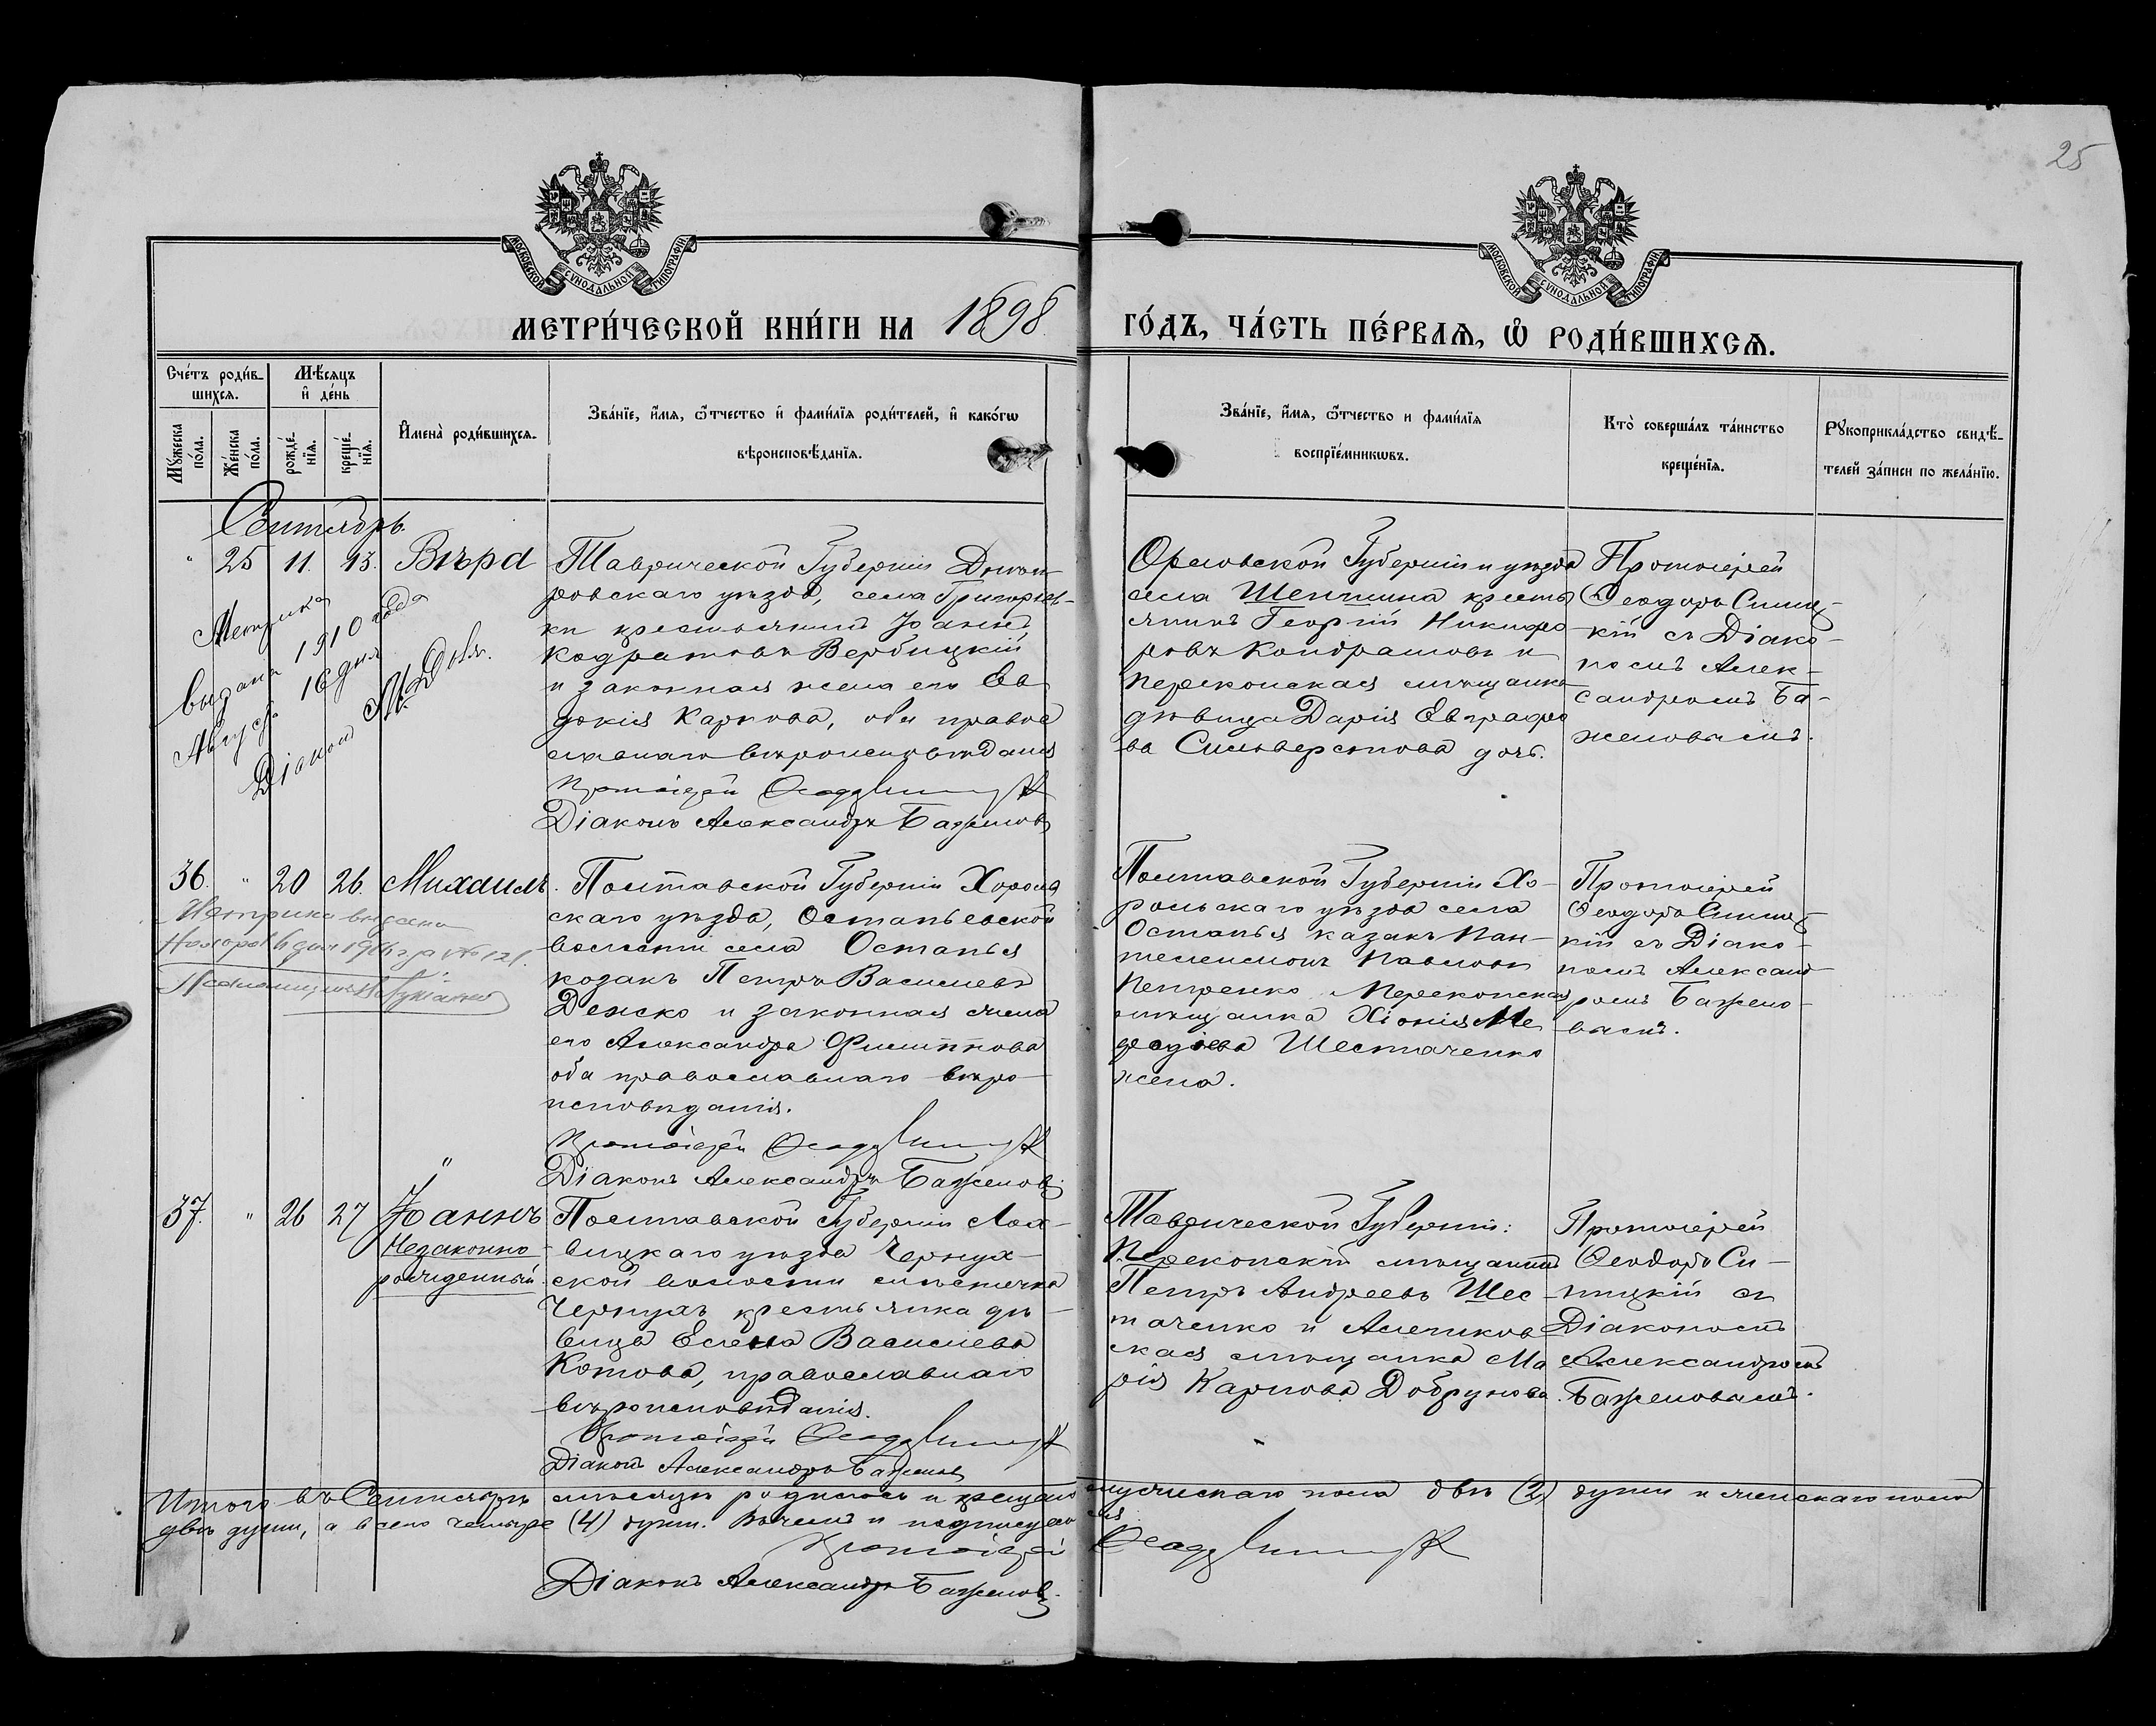 25
МОСКОВСКОЙ СѴНОДАЛЬНОЙ ТИПОГРАФІИ
МОСКОВСКОЙ СѴНОДАЛЬНОЙ ТИПОГРАФІИ
МЕТРИ́ЧЕСКОЙ КНИ́ГИ НА 1898
ГО́ДЪ, ЧА́СТЬ ПЕ́РВАѦ, Ѡ҆ РОДИ́ВШИХСѦ.
Сче́тъ роди́в-
шихсѧ.
Мꙋ́жеска
по́ла.
Же́нска
по́ла.
Мѣ́сѧцъ
и҆ де́нь
рожде́-
нїѧ.
креще́-
нїѧ.
И҆мена̀ роди́вшихсѧ.
Зва́нїе, и҆́мѧ, ѻ҆́тчество и҆ фами́лїѧ роди́телей, и҆ како́гѡ
вѣроисповѣ́данїѧ.
Зва́нїе, и҆́мѧ, ѻ҆́тчество и фами́лїѧ
воспрїе́мникѡвъ.
Кто̀ соверша́лъ та́инство
креще́нїѧ.
Рꙋкоприкла́дство свидѣ́-
телей за́писи по жела́нїю.
Сентябрь.
" 25 11. 13. Вѣра
Таврической Губерніи Днѣп-
ровскаго уѣзда, села Григорьев-
ки крестьянинъ Іоаннъ
Кодратовъ Вербицкій
и законная жена его Ев
докія Карпова, оба правос
лавнаго вѣроисповѣданія
Протоіерей
Діаконъ Александръ Баженовъ
Метрика
выдана 1910 года
Августа 16 дня
Діакон
Орловской Губерніи и уѣзда
села Шепшина кресть
янинъ Георгій Никифо
ровъ Кондрашовъ и
Перекопская мѣщанка
дѣвица Дарія Евграфо
ва Сильверстова дочь.
Протоіерей
Ѳеодоръ Синиц-
кій съ Діако-
номъ Алек-
сандромъ Ба-
женовымъ.
36. " 20 26. Михаилъ.
Метрика выдана
Полтавской Губерніи Хороль
скаго уѣзда, Остапьевской
волости села Остапья
козакъ Петръ Васильевъ
Дейко и законная жена
его Александра Филиппова
оба православнаго вѣро-
исповѣданія.
Протоіерей
Діаконъ Александръ Баженовъ
Полтавской Губерніи Хо-
рольскаго уѣзда села
Остапья казакъ Пан-
телеимонъ Павловъ
Петренко Перекопская
мѣщанка Хіонія Ме
ѳодіева Шестаченко
жена.
Протоіерей
Ѳеодоръ Синиц-
кій съ Діако-
номъ Александ-
ромъ Бажено-
вымъ.
37. " 26 27 Іоаннъ
Незаконно
рожденный
Полтавской Губерніи Лох-
вицкаго уѣзда Чернух-
ской волости мѣстечка
Чернухъ крестьянка дѣ-
вица Елена Васильева
Котова, православнаго
вѣроисповѣданія.
Протоіерей
Діаконъ Александръ Баженовъ
Таврической Губерніи:
Перекопскій мѣщанинъ
Петръ Андреевъ Шес-
таченко и Алешков
ская мѣщанка Ма
рія Карпова Добрунова.
Протоіерей
Ѳеодоръ Си-
ницкій съ
Діакономъ
Александромъ
Баженовымъ.
Итого въ Сентябрѣ мѣсяцѣ родилось и крещено мужескаго пола двѣ (2) души и женскаго пола
двѣ души, а всего четыре (4) душ. Вѣрно и подписуемся
Протоіерей
Діаконъ Александръ Баженовъ.